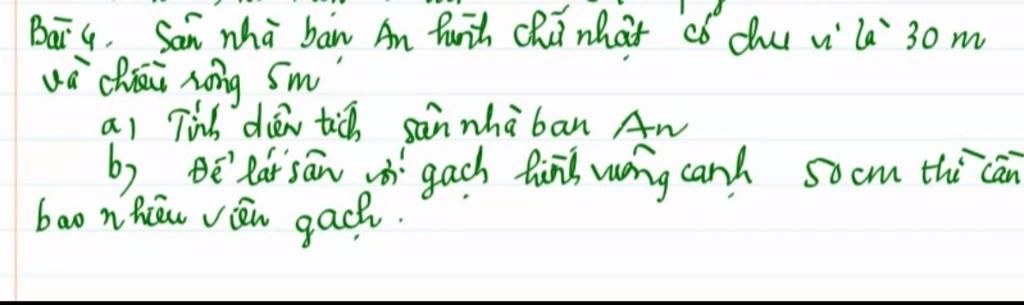 Bài 4. Sân nhà bạn An hình chữ nhật có chu vi là 30 m
và chiều rộng 5m
a) Tính diện tích sân nhà bạn An
b) Để lát sân với gạch hình vuông cạnh 50 cm thì cần
bao nhiêu viên gạch.